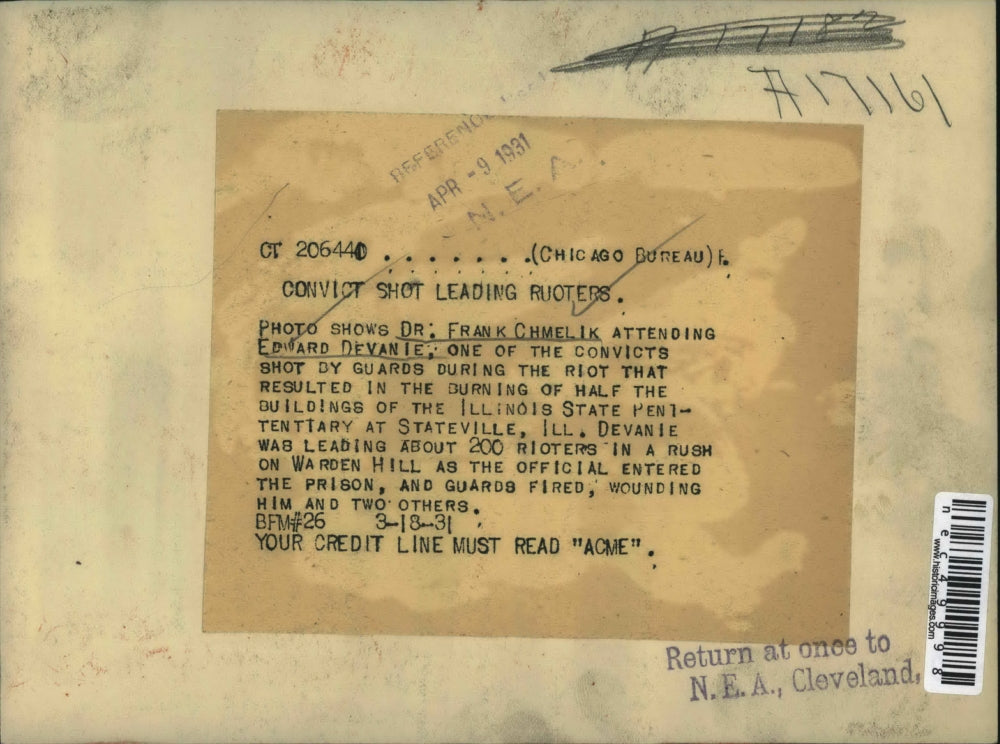 A 17182
A17161
REFERENCE
APR - 9 1931
N. E. A.
CT 206440 . . . . . . . (CHICAGO BUREAU) F.
CONVICT SHOT LEADING RUOTERS.
PHOTO SHOWS DR. FRANK CHMELIK ATTENDING
EDWARD DEVANIE, ONE OF THE CONVICTS
SHOT BY GUARDS DURING THE RIOT THAT
RESULTED IN THE BURNING OF HALF THE
BUILDINGS OF THE ILLINOIS STATE PENI-
TENTIARY AT STATEVILLE, ILL. DEVANIE
WAS LEADING ABOUT 200 RIOTERS IN A RUSH
ON WARDEN HILL AS THE OFFICIAL ENTERED
THE PRISON, AND GUARDS FIRED, WOUNDING
HIM AND TWO OTHERS.
BFM#26 3-18-31
YOUR CREDIT LINE MUST READ "ACME".
nec49998
www.historicimages.com
Return at once to
N. E. A., Cleveland,